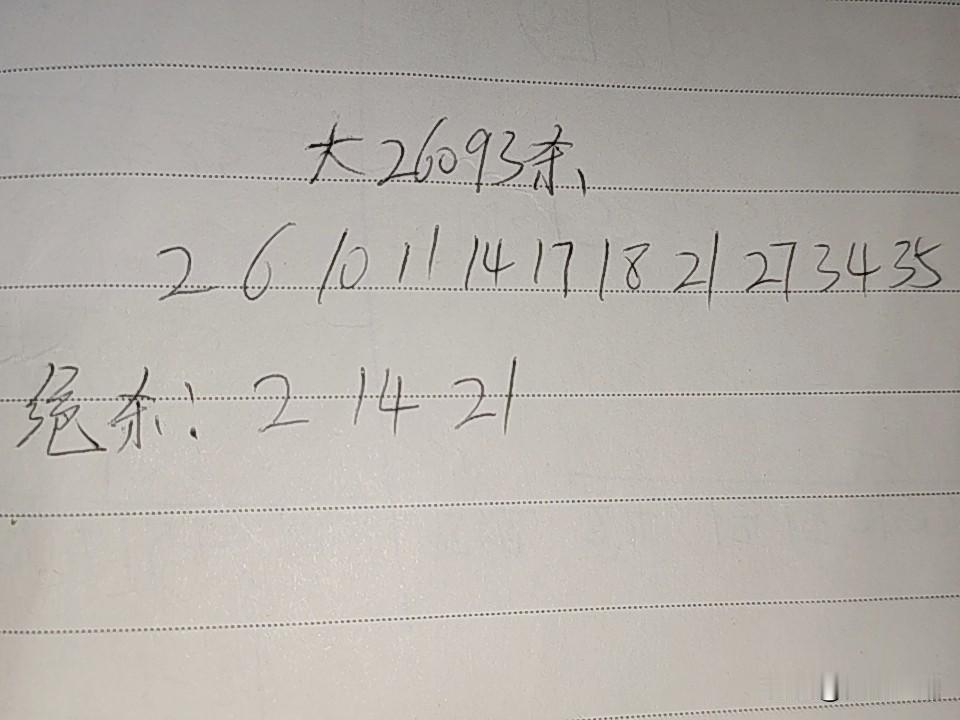 大26093杀、
2 6 10 11 14 17 18 21 27 34 35
绝杀: 2 14 21